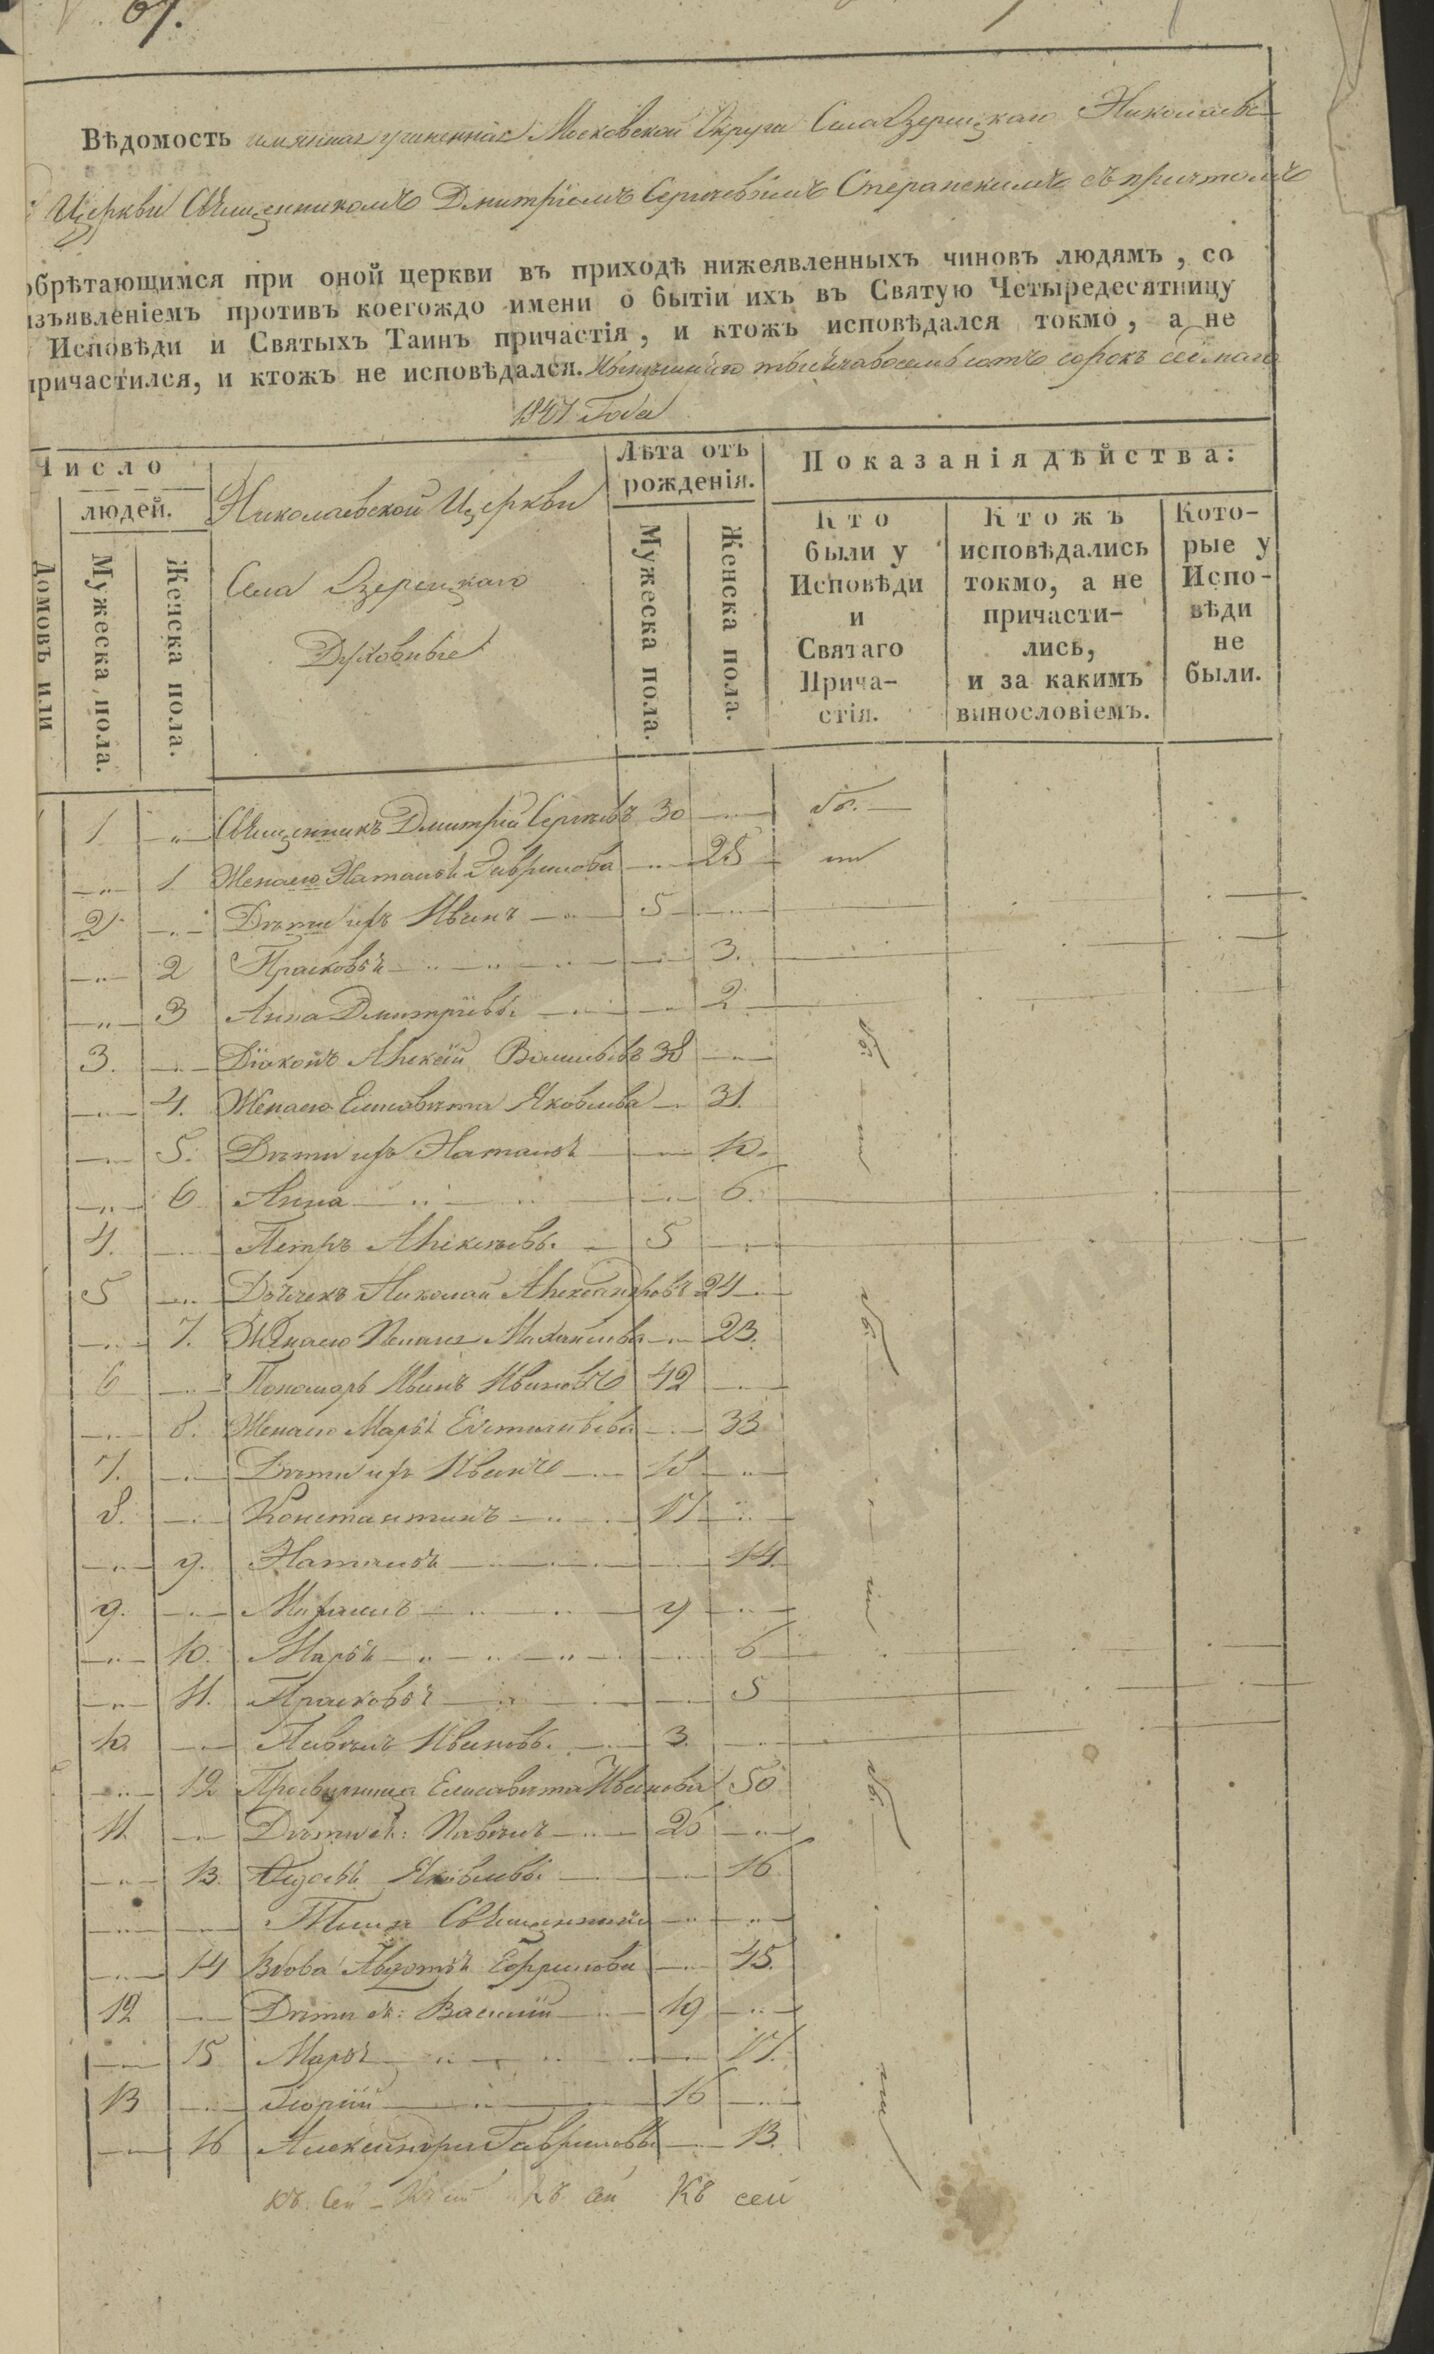 67.
Вѣдомость имянная учиненная Московской Округи Села Озерецкаго Николаевс
Церкви Священникомъ Дмитріемъ Сергіевымъ Сперанскимъ съ причтомъ
обрѣтающимся при оной церкви въ приходѣ нижеявленныхъ чиновъ людямъ, со
изъявленіемъ противъ коегождо имени о бытіи ихъ въ Святую Четыредесятницу
Исповѣди и Святыхъ Таинъ причастія, и ктожъ исповѣдался токмо, а не
причастился, и ктожъ не исповѣдался. тысяча восемь сотъ сорокъ седмаго
1847 Года
Число людей.
Домовъ или
Мужеска пола.
Женска пола.
Николаевской Церкви
Села Озерецкаго
Духовные
Лѣта отъ рожденія.
Мужеска пола.
Женска пола.
Показанія дѣйства:
Кто были у Исповѣди и Святаго Причастія.
Ктожъ исповѣдались токмо, а не причастились, и за какимъ винословіемъ.
Которые у Исповѣди не были.
1 Священникъ Дмитрій Сергіевъ 30
1 Жена его Наталья Гаврилова 28
2 Дѣти ихъ Иванъ 5
2 Прасковья 3.
3 Анна Дмитріевы. 2
3. Діаконъ Алексѣй Васильевъ 38
4. Жена его Елисавета Яковлева 31.
5. Дѣти ихъ Наталья 10.
6 Анна 6.
4. Петръ Алексѣевы. 5
5 Дьячекъ Николай Александровъ 24
7. Жена его Михайлова 23.
6 Пономарь Иванъ Ивановъ 42
8. Жена его Марья 33
7. Дѣти ихъ Иванъ 18
8. Константинъ 17
9. Наталья 14.
9. Михаилъ 9
10. Марья 6
11. Прасковья 5
10. Павелъ Ивановы. 3.
12 Просвирница Елисавета Иванова 50
11. Дѣти ея: Павелъ 26
13. Яковлевы. 16
Священника
14 Вдова Авдотья 45.
12 Дѣти ея: Василій 19
15 Марья 17.
13 Георгій 16
16 Александра Гавриловы 13.
къ сей къ сей къ сей